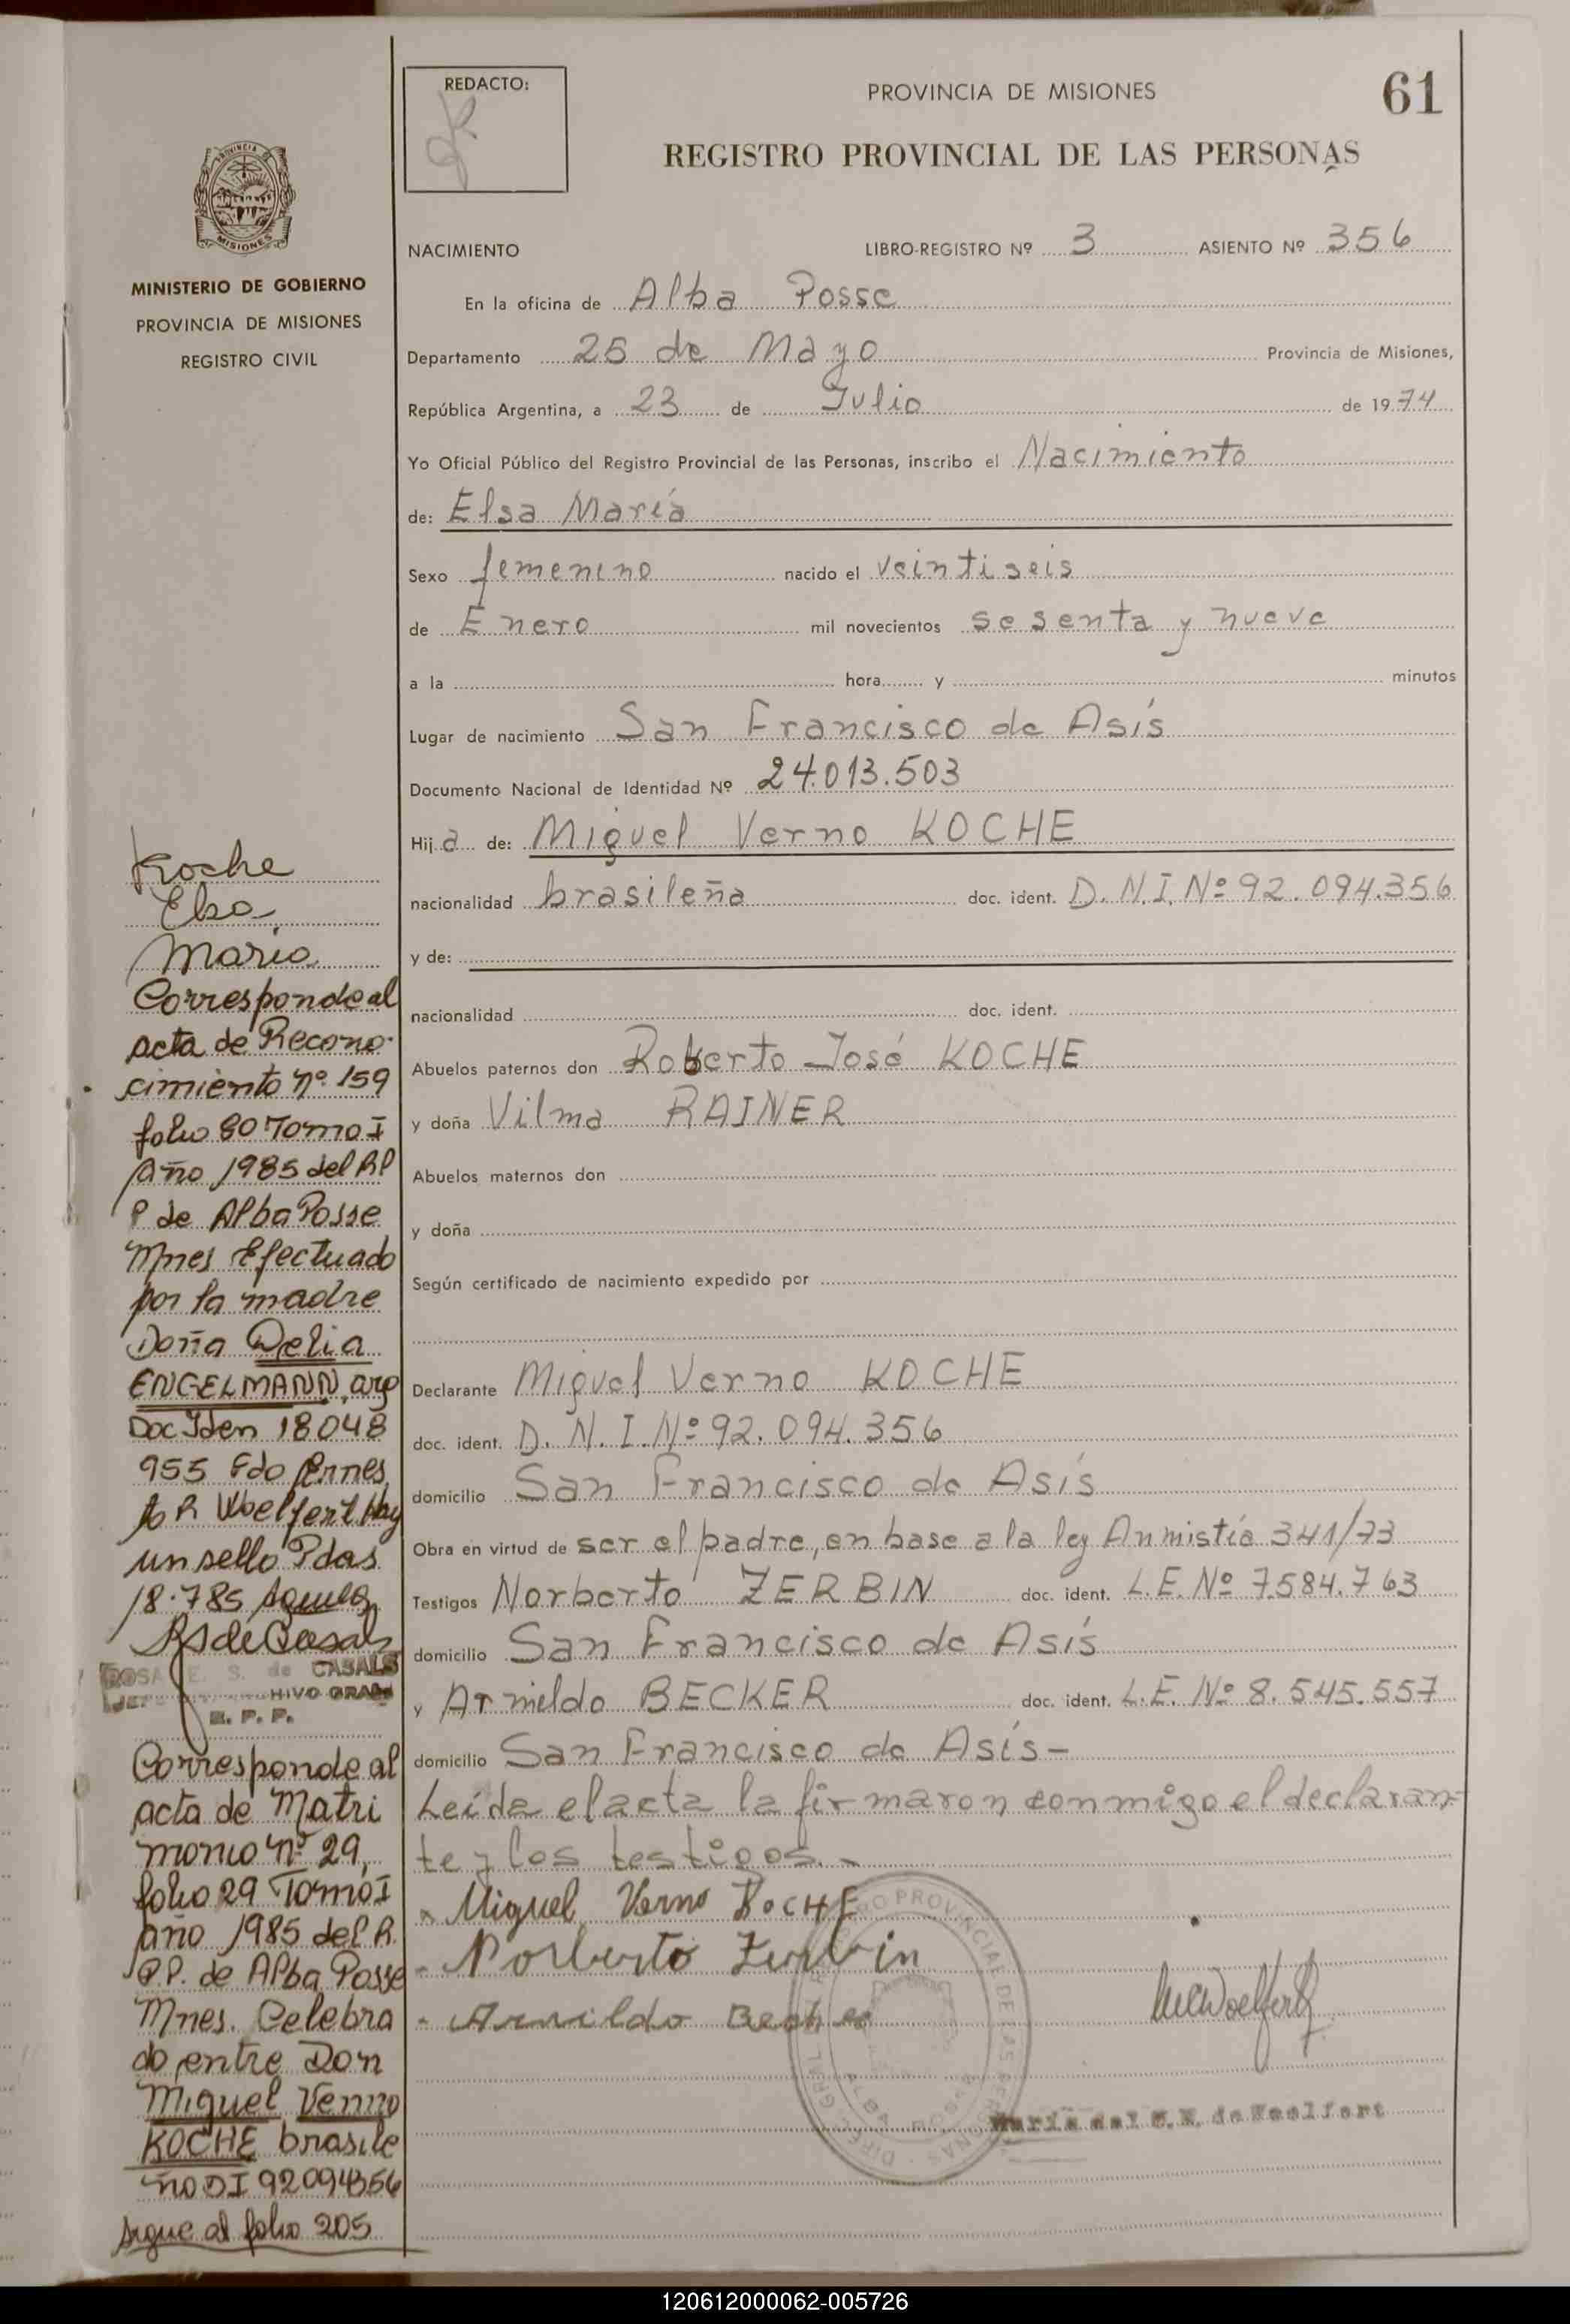 REDACTO:
PROVINCIA DE MISIONES
61
REGISTRO PROVINCIAL DE LAS PERSONAS
PROVINCIA DE
MISIONES
MINISTERIO DE GOBIERNO
PROVINCIA DE MISIONES
REGISTRO CIVIL
NACIMIENTO LIBRO-REGISTRO Nº 3 ASIENTO Nº 356
En la oficina de Alba Posse
Departamento 25 de Mayo Provincia de Misiones,
República Argentina, a 23 de Julio de 1974
Yo Oficial Público del Registro Provincial de las Personas, inscribo el Nacimiento
de: Elsa María
Sexo femenino nacido el veintiseis
de Enero mil novecientos sesenta y nueve
a la hora y minutos
Lugar de nacimiento San Francisco de Asís
Documento Nacional de Identidad Nº 24.013.503
Hija de: Miguel Verno KOCHE
nacionalidad brasileña doc. ident. D.N.I.Nº 92.094.356
y de:
nacionalidad doc. ident.
Abuelos paternos don Roberto José KOCHE
y doña Vilma RAINER
Abuelos maternos don
y doña
Según certificado de nacimiento expedido por
Declarante Miguel Verno KOCHE
doc. ident. D.N.I.Nº 92.094.356
domicilio San Francisco de Asís
Obra en virtud de ser el padre, en base a la ley Anmistía 341/73
Testigos Norberto ZERBIN doc. ident. L.E.Nº 7.584.763
domicilio San Francisco de Asís
y Arnildo BECKER doc. ident. L.E.Nº 8.545.557
domicilio San Francisco de Asís-
Leída el acta la firmaron conmigo el declaran-
te y los testigos.-
Miguel Verno KOCHE
Norberto Zerbin
Arnildo Becker
María del C. K. de Woelfert
Koche
Elsa
Maria
Corresponde al
acta de Recono-
cimiento nº 159
folio 80 Tomo I
Año 1985 del RP
P de Alba Posse
Mnes Efectuado
por la madre
Doña Delia
ENGELMANN, arg
Doc Iden 18048
955 Fdo Ernes
to R Woelfert Hay
un sello Pdas
18.785
RS de Casals
ROSA E. S. de CASALS
R. P. P.
Corresponde al
acta de Matri
monio nº 29,
folio 29 Tomo I
año 1985 del R.
P.P. de Alba Posse
Mnes. Celebra
do entre Don
Miguel Venno
KOCHE brasile
ño DI 92094356
sigue al folio 205
120612000062-005726